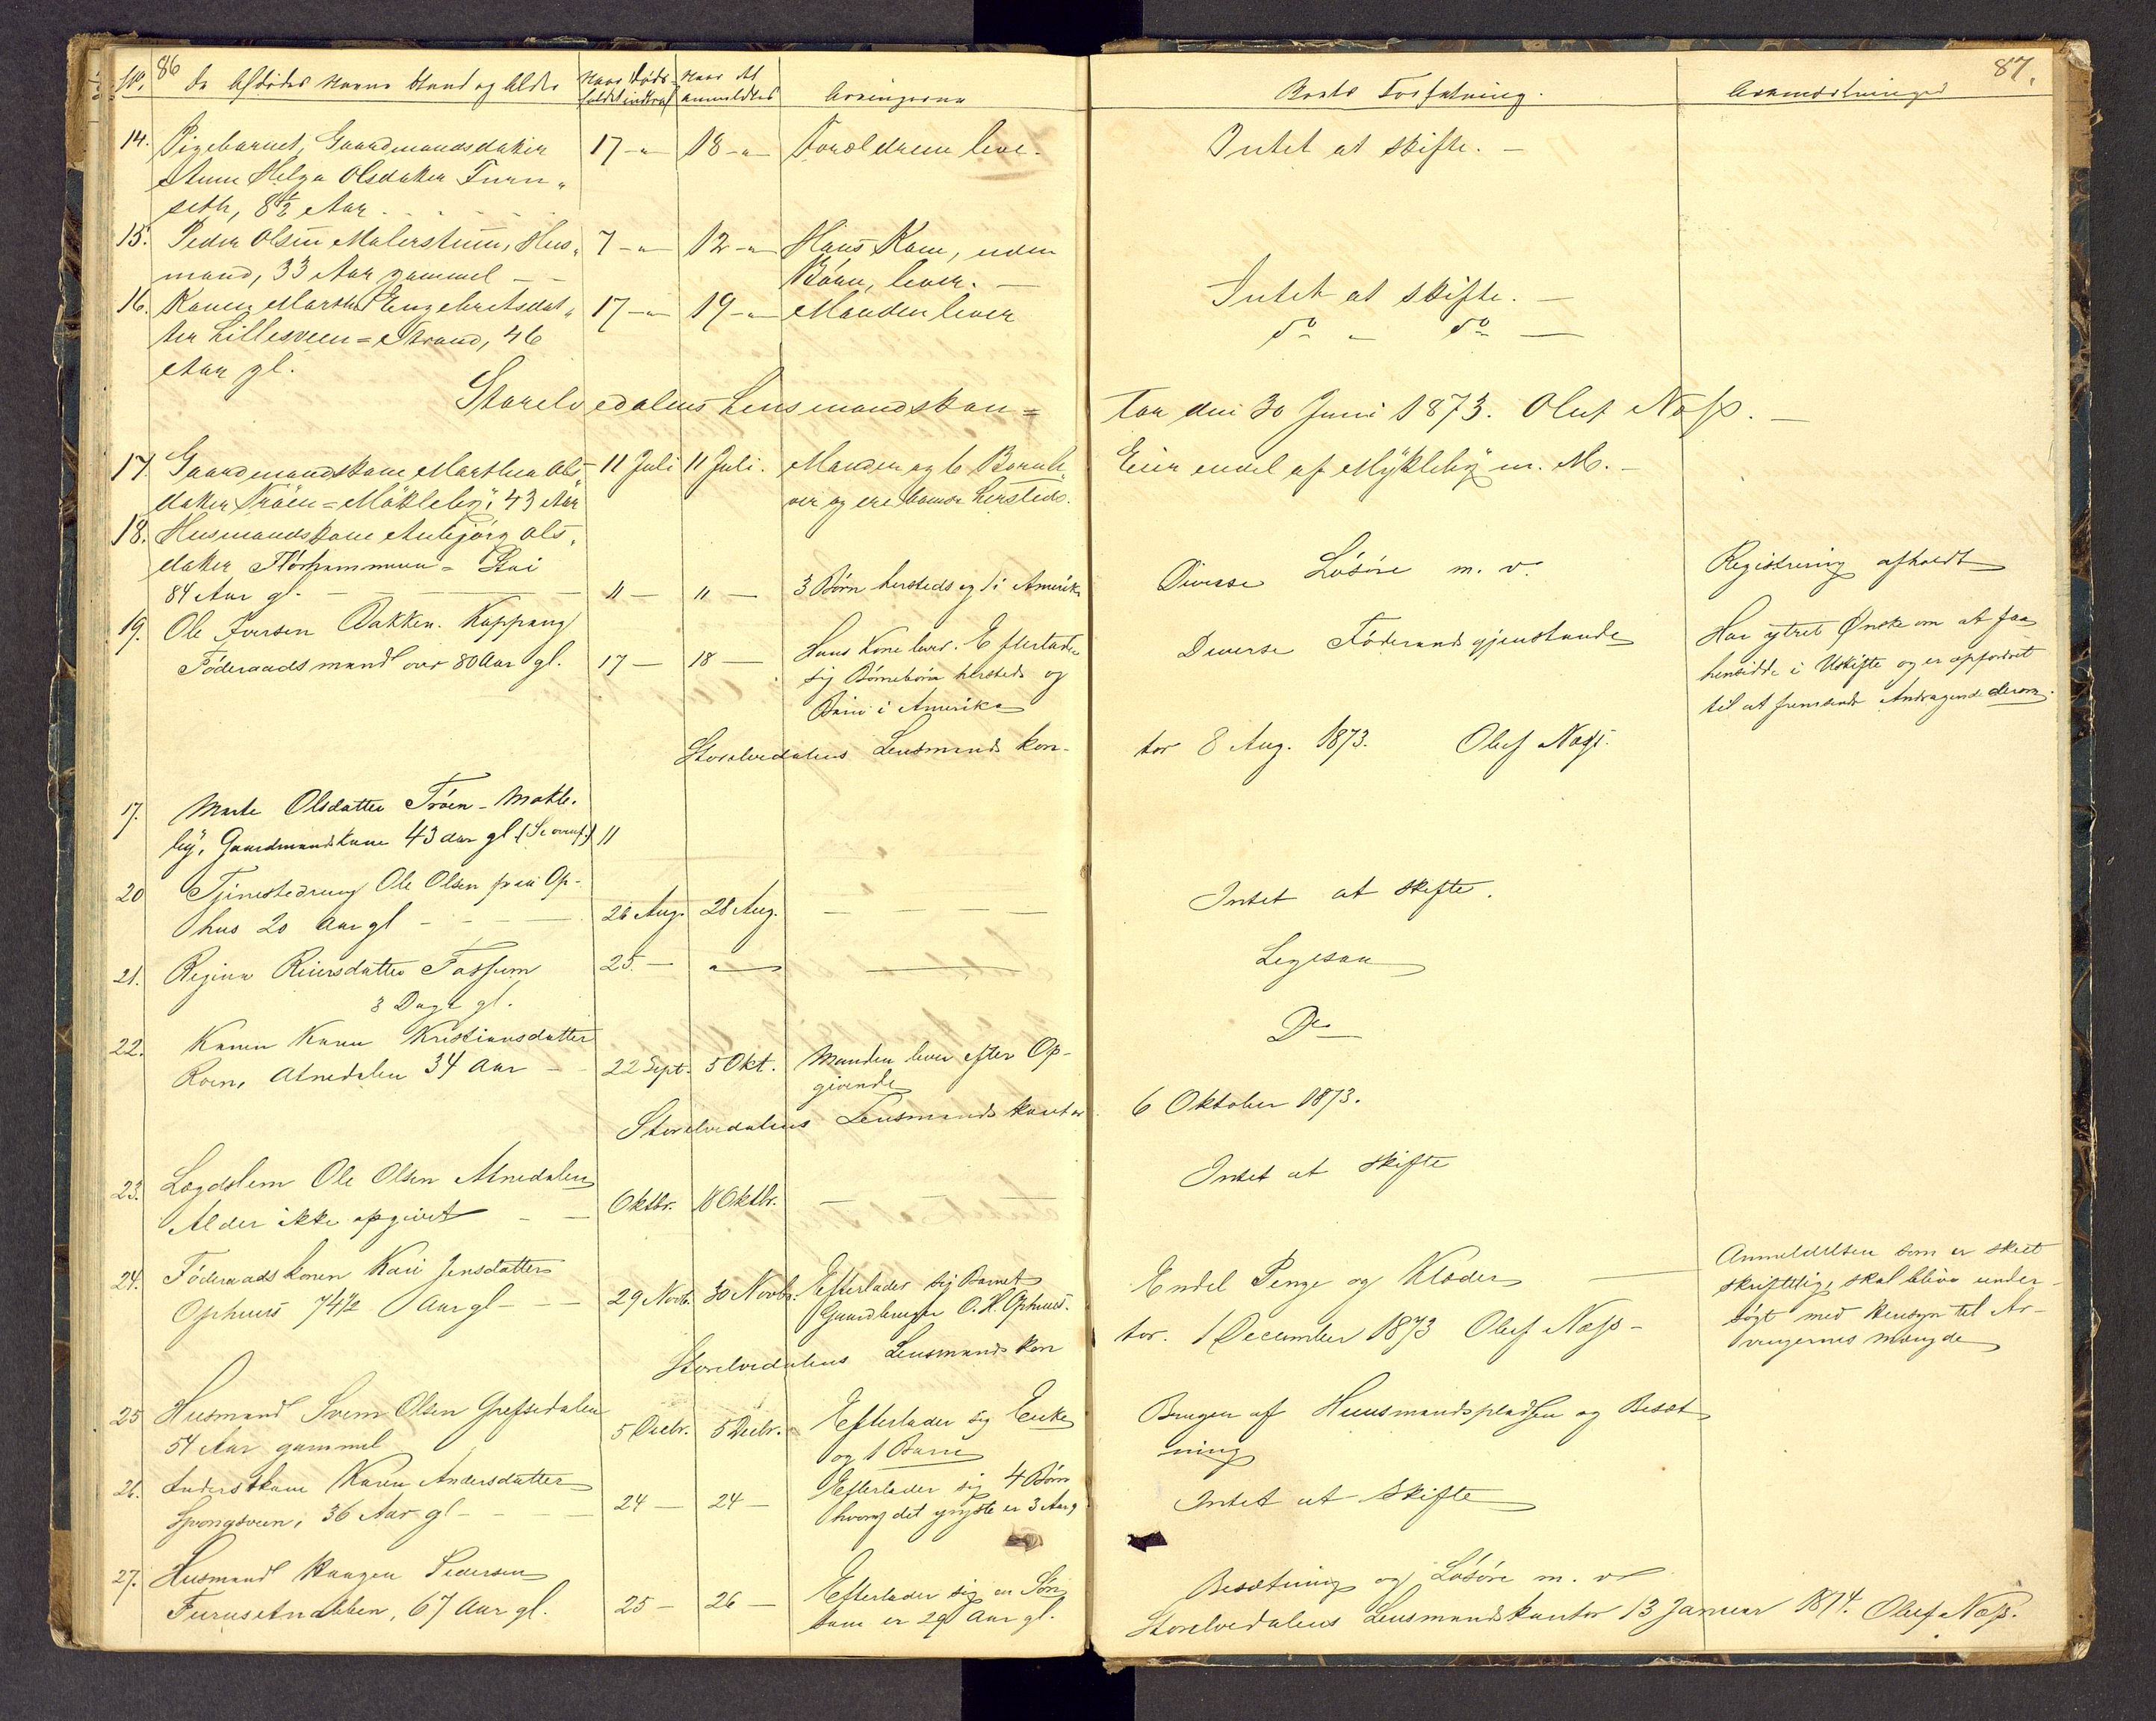 86
No. De Afdødes Navne Stand og Alder
Naar Døds-
faldet indtraf
Naar det
anmeldtes
Arvingerne
14. Pigebarnet, Gaardmandsdatter 17 - " 18 - " Forældrene leve.
Anne Helga Olsdatter Furu„
seth, 8 1/2 Aar
15. Peder Olsen Malerstuen, Hus„ 7 - " 12 - " Hans Kone, uden
mand, 33 Aar gammel Børn, lever.
16. Konen Marthe Engebretsdat„ 17 - " 19 - " Manden lever
ter Lillesveen=Strand, 46
Aar gl.
Storelvedalens Lensmandskon=
17. Gaardmandskone Marthea Ols 11 Juli 11 Juli. Manden og 6 Børn le„
datter Trøen=Møkleby, 43 Aar ver og ere hersteds.
18. Husmandskone Anbjørg Ols„
datter Stai
84 Aar gl. 11 — 11 — 3 Børn hersteds og 1 i Amerika
19. Ole Iversen Bakken. Koppang Hans Kone lever. Efterlader
Føderaadsmand over 80 Aar gl. 17 — 18 — sig Børnebørn hersteds og
Børn i Amerika
Storelvedalens Lensmands kon-
17. Marte Olsdatter Trøen-Møkle-
by, Gaardmandskone 43 Aar gl. (Se ovenf.) 11
20 Tjenestedreng Ole Olsen paa Op-
hus 20 Aar gl 26 Aug. 28 Aug.
21. Regine Reiersdatter Fossum 25. — "
3 Dage gl.
22. Konen Karen Kristiansdatter
Roen, Atnedalen 34 Aar 22 Sept. 5 Okt. Manden lever efter Op-
givende
Storelvedalens Lensmands kontor
23. Lægdslem Ole Olsen Atnedalen
Alder ikke opgivet Oktbr. 18 Oktbr.
24. Føderaadskonen Kari Jensdatter
Ophuus 74 1/2 Aar gl 29 Novb. 30 Novbr. Efterlader sig Barnet
Gaardbruger O. H. Ophuus.
Storelvedalens Lensmands kon
25 Husmand Svend Olsen Grefsedalen
54 Aar gammel 5 Decbr. 5 Decbr. Efterlader sig Enke
og 1 Barn
26. Inderstkone Karen Andersdatter Efterlader sig 4 Børn
Spongsveen, 36 Aar gl 24 — 24 — hvoraf det yngste er 3 Aar
27. Husmand Haagen Pedersen
Furusetnabben, 67 Aar gl. 25 — 26 — Efterlader sig en Søn
som er 29 Aar gl.
87.
Boets Forfatning. Anmærkninger
Intet at skifte. —
Intet at skifte. —
do " do —
tor den 30 Juni 1873. Oluf Næss.
Eier endel af Mykleby m. M. —
Diverse Løsøre m. v. Registrering afholdt
Diverse Føderaadsgjenstande
Har ytret Ønske om at faa
hensidde i Uskifte og er opfordret
til at fremsende Andragende derom.
tor 8 Aug. 1873. Oluf Næss.
Intet at skifte.
Ligesaa
Do
6 Oktober 1873.
Intet at skifte
Endel Penge og Klæder
Anmeldelsen som er skeet
skriftlig, skal blive under-
søgt med Hensyn til Ar-
vingernes Mængde
tor. 1 December 1873 Oluf Næss —
Brugen af Huusmandspladsen og Besæt-
ning
Intet at skifte
Besætning og Løsøre m. v
Storelvedalens Lensmandskontor 13 Januar 1874. Oluf Næss.